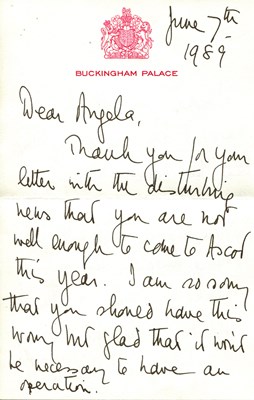 June 7th
1989
BUCKINGHAM PALACE
Dear Angela,
Thank you for your
letter with the disturbing
news that you are not
well enough to come to Ascot
this year. I am so sorry
that you should have this
worry but glad that it won't
be necessary to have an
operation.